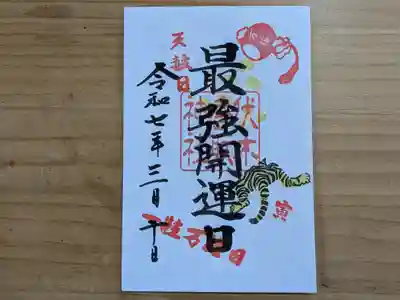 天赦日
最強開運日
令和七年三月十日
寅
一粒万倍日